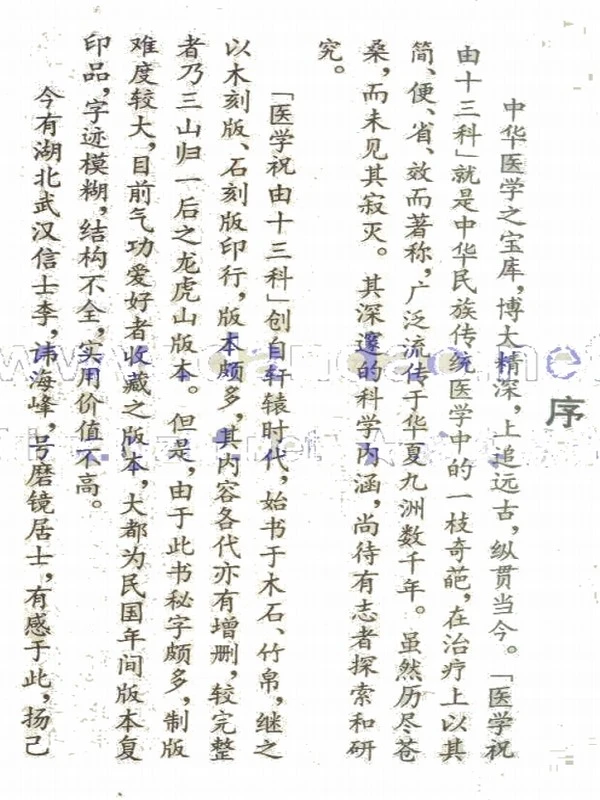 序
中华医学之宝库，博大精深，上追远古，纵贯当今。「医学祝
由十三科」就是中华民族传统医学中的一枝奇葩，在治疗上以其
简、便、省、效而著称，广泛流传于华夏九洲数千年。虽然历尽苍
桑，而未见其寂灭。其深邃的科学内涵，尚待有志者探索和研
究。
「医学祝由十三科」创自轩辕时代，始书于木石、竹帛，继之
以木刻版、石刻版印行，版本颇多，其内容各代亦有增删，较完整
者乃三山归一后之龙虎山版本。但是，由于此书秘字颇多，制版
难度较大，目前气功爱好者收藏之版本，大都为民国年间版本复
印品，字迹模糊，结构不全，实用价值不高。
今有湖北武汉信士李，讳海峰，号磨镜居士，有感于此，扬己